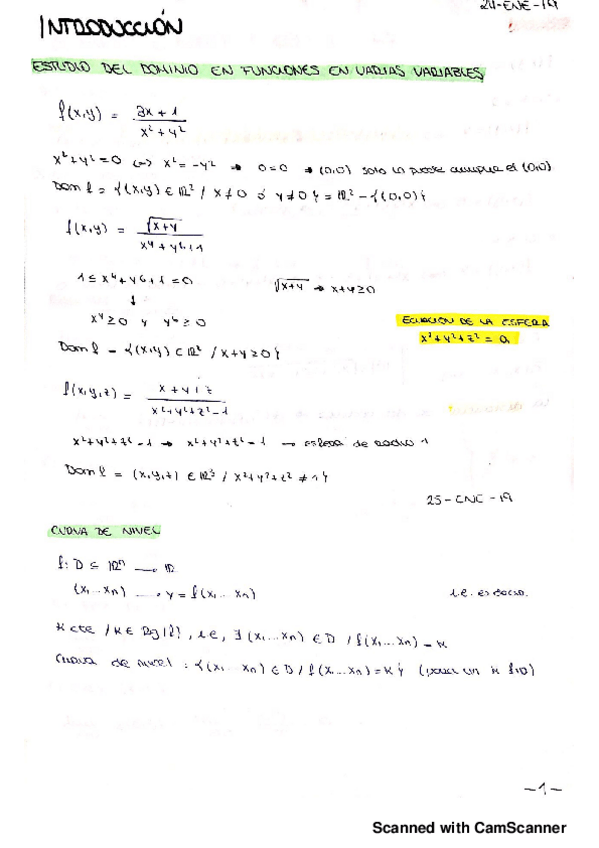 24-ENE-19
INTRODUCCIÓN
ESTUDIO DEL DOMINIO EN FUNCIONES EN VARIAS VARIABLES
f(x,y) = 3x + 1 / x² + y²
x² + y² = 0 (=) x² = -y² → 0=0 → (0,0) solo lo puede cumplir el (0,0)
Dom f = {(x,y) ∈ ℝ² / x≠0 ó y≠0} = ℝ² - {(0,0)}
f(x,y) = √x+y / x⁴ + y⁶ + 1
1 ≤ x⁴ + y⁶ + 1 = 0 √x+y → x+y≥0
↓
x⁴ ≥ 0 y y⁶ ≥ 0
ECUACION DE LA ESFERA
x² + y² + z² = a
Dom f = {(x,y) ⊂ ℝ² / x+y ≥ 0}
f(x,y,z) = x + y + z / x² + y² + z² - 1
x² + y² + z² - 1 → x² + y² + z² - 1 → esfera de radio 1
Dom f = (x,y,z) ∈ ℝ³ / x² + y² + z² ≠ 1}
25-ENE-19
CURVA DE NIVEL
f: D ⊆ ℝⁿ → ℝ
(x₁...xₙ) → y = f(x₁...xₙ) i.e. es decir.
K cte / K ∈ Rg(f), i.e, ∃ (x₁...xₙ) ∈ D / f(x₁...xₙ) = K
Curva de nivel : {(x₁...xₙ) ∈ D / f(x₁...xₙ) = K} (para un K fijo)
-1-
Scanned with CamScanner